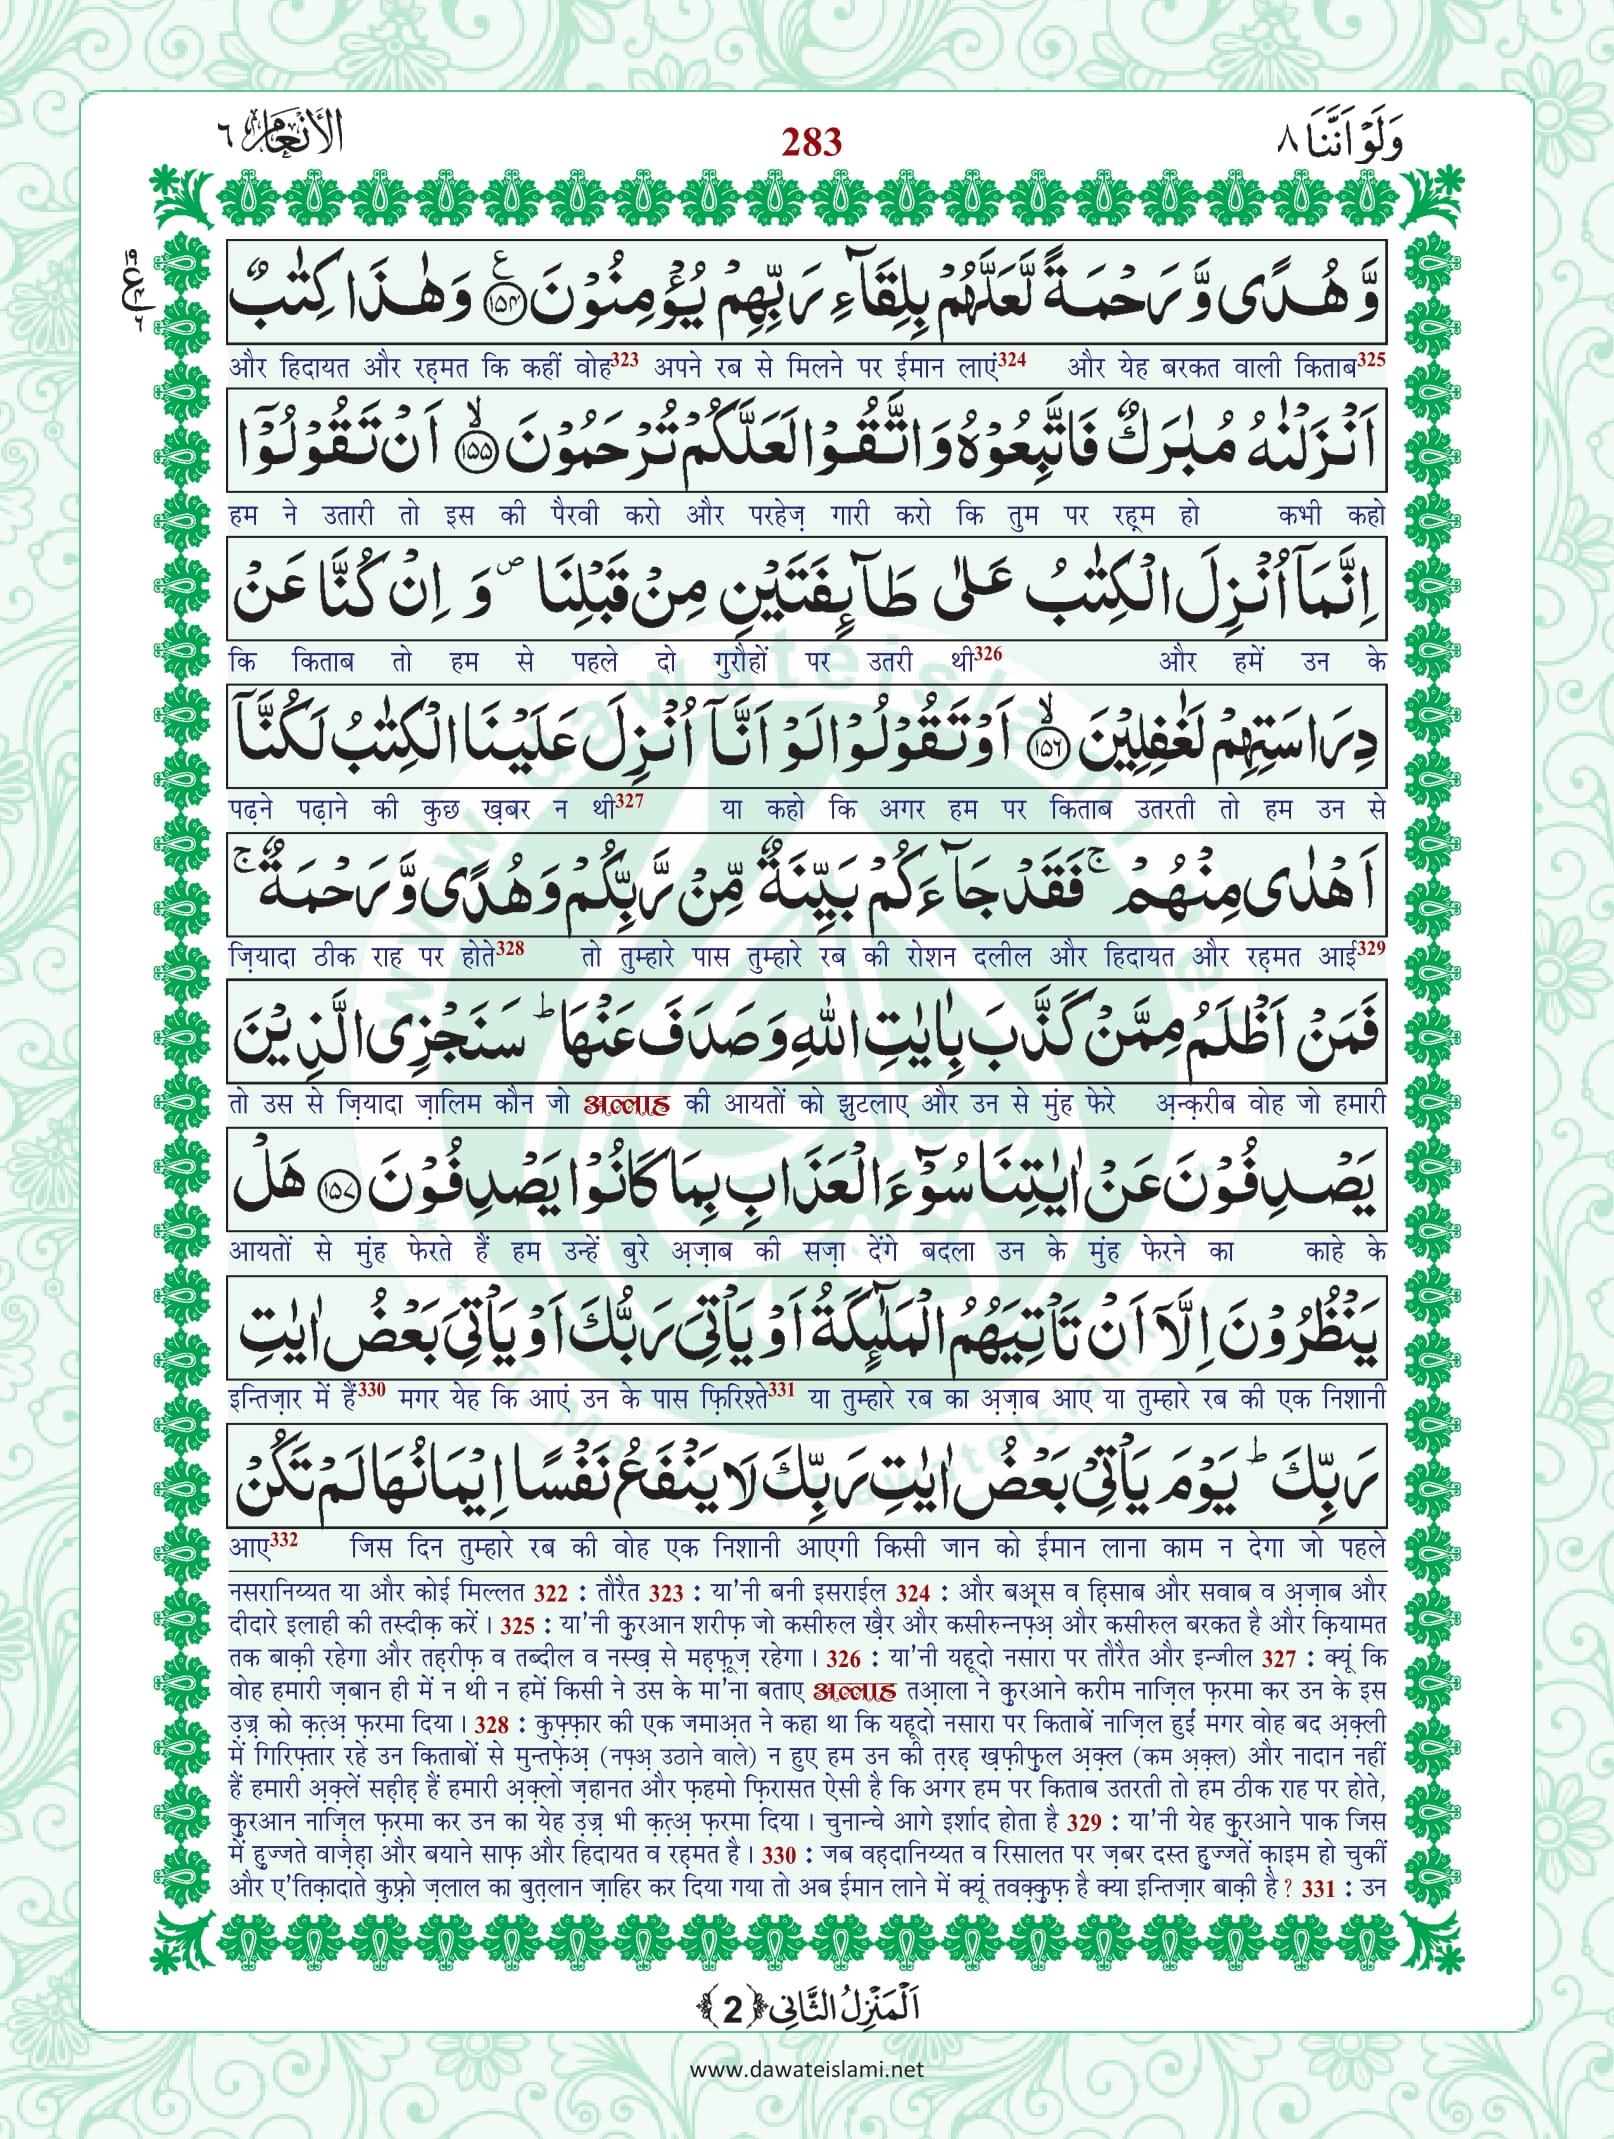 وَلَوْ اَنَّنَا ٨
283
الْاَنْعَام ٦
وَّ هُدًى وَّ رَحْمَةً لَّعَلَّهُمْ بِلِقَآءِ رَبِّهِمْ یُؤْمِنُوْنَ ﴿۱۵۴﴾ وَ هٰذَا كِتٰبٌ
और हिदायत और रह़मत कि कहीं वोह323 अपने रब से मिलने पर ईमान लाएं324 और येह बरकत वाली किताब325
اَنْزَلْنٰهُ مُبٰرَكٌ فَاتَّبِعُوْهُ وَ اتَّقُوْا لَعَلَّكُمْ تُرْحَمُوْنَ ﴿۱۵۵﴾ اَنْ تَقُوْلُوْۤا
हम ने उतारी तो इस की पैरवी करो और परहेज़ गारी करो कि तुम पर रह़्म हो कभी कहो
اِنَّمَاۤ اُنْزِلَ الْكِتٰبُ عَلٰى طَآىٕفَتَیْنِ مِنْ قَبْلِنَا ۪ وَ اِنْ كُنَّا عَنْ
कि किताब तो हम से पहले दो गुरौहों पर उतरी थी326 और हमें उन के
دِرَاسَتِهِمْ لَغٰفِلِیْنَ ﴿۱۵۶﴾ اَوْ تَقُوْلُوْا لَوْ اَنَّاۤ اُنْزِلَ عَلَیْنَا الْكِتٰبُ لَكُنَّاۤ
पढ़ने पढ़ाने की कुछ ख़बर न थी327 या कहो कि अगर हम पर किताब उतरती तो हम उन से
اَهْدٰى مِنْهُمْ ۚ فَقَدْ جَآءَكُمْ بَیِّنَةٌ مِّنْ رَّبِّكُمْ وَ هُدًى وَّ رَحْمَةٌ ۚ
ज़ियादा ठीक राह पर होते328 तो तुम्हारे पास तुम्हारे रब की रोशन दलील और हिदायत और रह़मत आई329
فَمَنْ اَظْلَمُ مِمَّنْ كَذَّبَ بِاٰیٰتِ اللّٰهِ وَ صَدَفَ عَنْهَا ؕ سَنَجْزِی الَّذِیْنَ
तो उस से ज़ियादा ज़ालिम कौन जो अल्लाह की आयतों को झुटलाए और उन से मुंह फेरे अ़न्क़रीब वोह जो हमारी
یَصْدِفُوْنَ عَنْ اٰیٰتِنَا سُوْٓءَ الْعَذَابِ بِمَا كَانُوْا یَصْدِفُوْنَ ﴿۱۵۷﴾ هَلْ
आयतों से मुंह फेरते हैं हम उन्हें बुरे अ़ज़ाब की सज़ा देंगे बदला उन के मुंह फेरने का काहे के
یَنْظُرُوْنَ اِلَّاۤ اَنْ تَاْتِیَهُمُ الْمَلٰٓىٕكَةُ اَوْ یَاْتِیَ رَبُّكَ اَوْ یَاْتِیَ بَعْضُ اٰیٰتِ
इन्तिज़ार में हैं330 मगर येह कि आएं उन के पास फ़िरिश्ते331 या तुम्हारे रब का अ़ज़ाब आए या तुम्हारे रब की एक निशानी
رَبِّكَ ؕ یَوْمَ یَاْتِیْ بَعْضُ اٰیٰتِ رَبِّكَ لَا یَنْفَعُ نَفْسًا اِیْمَانُهَا لَمْ تَكُنْ
आए332 जिस दिन तुम्हारे रब की वोह एक निशानी आएगी किसी जान को ईमान लाना काम न देगा जो पहले
नसरानिय्यत या और कोई मिल्लत 322 : तौरैत 323 : या'नी बनी इसराईल 324 : और बअ़्स व ह़िसाब और सवाब व अ़ज़ाब और
दीदारे इलाही की तस्दीक़ करें । 325 : या'नी क़ुरआन शरीफ़ जो कसीरुल ख़ैर और कसीरुन्नफ़्अ़ और कसीरुल बरकत है और क़ियामत
तक बाक़ी रहेगा और तह़रीफ़ व तब्दील व नस्ख़ से मह़फ़ूज़ रहेगा । 326 : या'नी यहूदो नसारा पर तौरैत और इन्जील 327 : क्यूं कि
वोह हमारी ज़बान ही में न थी न हमें किसी ने उस के मा'ना बताए अल्लाह तआ़ला ने क़ुरआने करीम नाज़िल फ़रमा कर उन के इस
उ़ज़्र को क़त़्अ़ फ़रमा दिया । 328 : कुफ़्फ़ार की एक जमाअ़त ने कहा था कि यहूदो नसारा पर किताबें नाज़िल हुईं मगर वोह बद अ़क़्ली
में गिरिफ़्तार रहे उन किताबों से मुन्तफ़ेअ़ (नफ़्अ़ उठाने वाले) न हुए हम उन की त़रह़ ख़फ़ीफ़ुल अ़क़्ल (कम अ़क़्ल) और नादान नहीं
हैं हमारी अ़क़्लें सह़ीह़ हैं हमारी अ़क़्लो ज़हानत और फ़हमो फ़िरासत ऐसी है कि अगर हम पर किताब उतरती तो हम ठीक राह पर होते,
क़ुरआन नाज़िल फ़रमा कर उन का येह उ़ज़्र भी क़त़्अ़ फ़रमा दिया । चुनान्चे आगे इर्शाद होता है 329 : या'नी येह क़ुरआने पाक जिस
में ह़ुज्जते वाज़ेह़ा और बयाने साफ़ और हिदायत व रह़मत है । 330 : जब वह़दानिय्यत व रिसालत पर ज़बर दस्त ह़ुज्जतें क़ाइम हो चुकीं
और ए'तिक़ादाते कुफ़्रो ज़लाल का बुत़लान ज़ाहिर कर दिया गया तो अब ईमान लाने में क्यूं तवक़्क़ुफ़ है क्या इन्तिज़ार बाक़ी है ? 331 : उन
اَلْمَنْزِلُ الثَّانِی ﴿2﴾
www.dawateislami.net